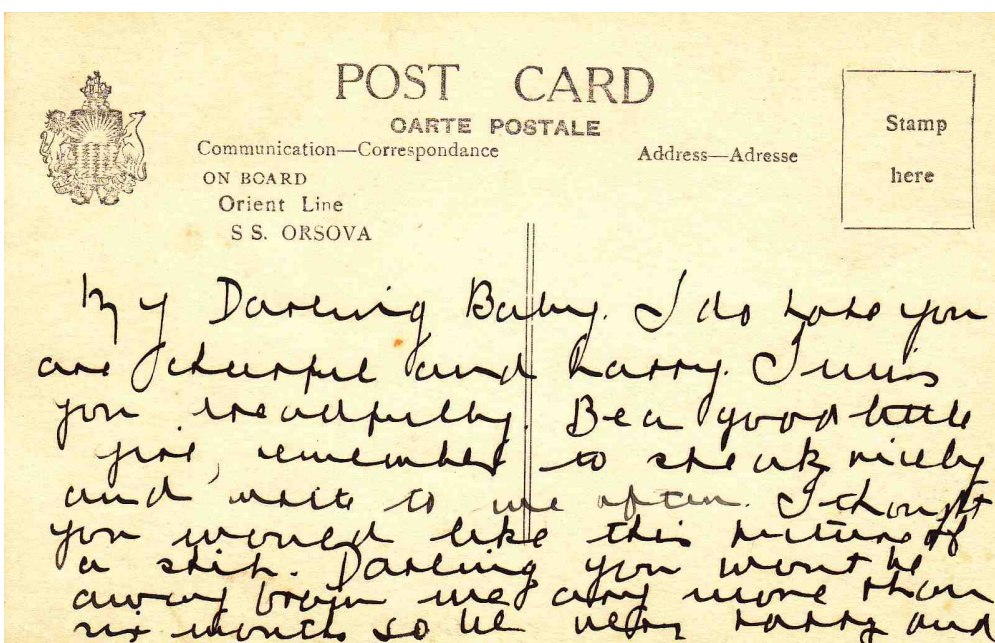 POST CARD
CARTE POSTALE
Communication—Correspondance
Address—Adresse
Stamp
here
ON BOARD
Orient Line
S S. ORSOVA
My Darling Baby. I do hope you
are cheerful and happy. I miss
you dreadfully. Be a good little
girl, remember to speak nicely
and write to me often. I thought
you would like this picture of
a ship. Darling you wont be
away from me any more than
six months so be very happy and